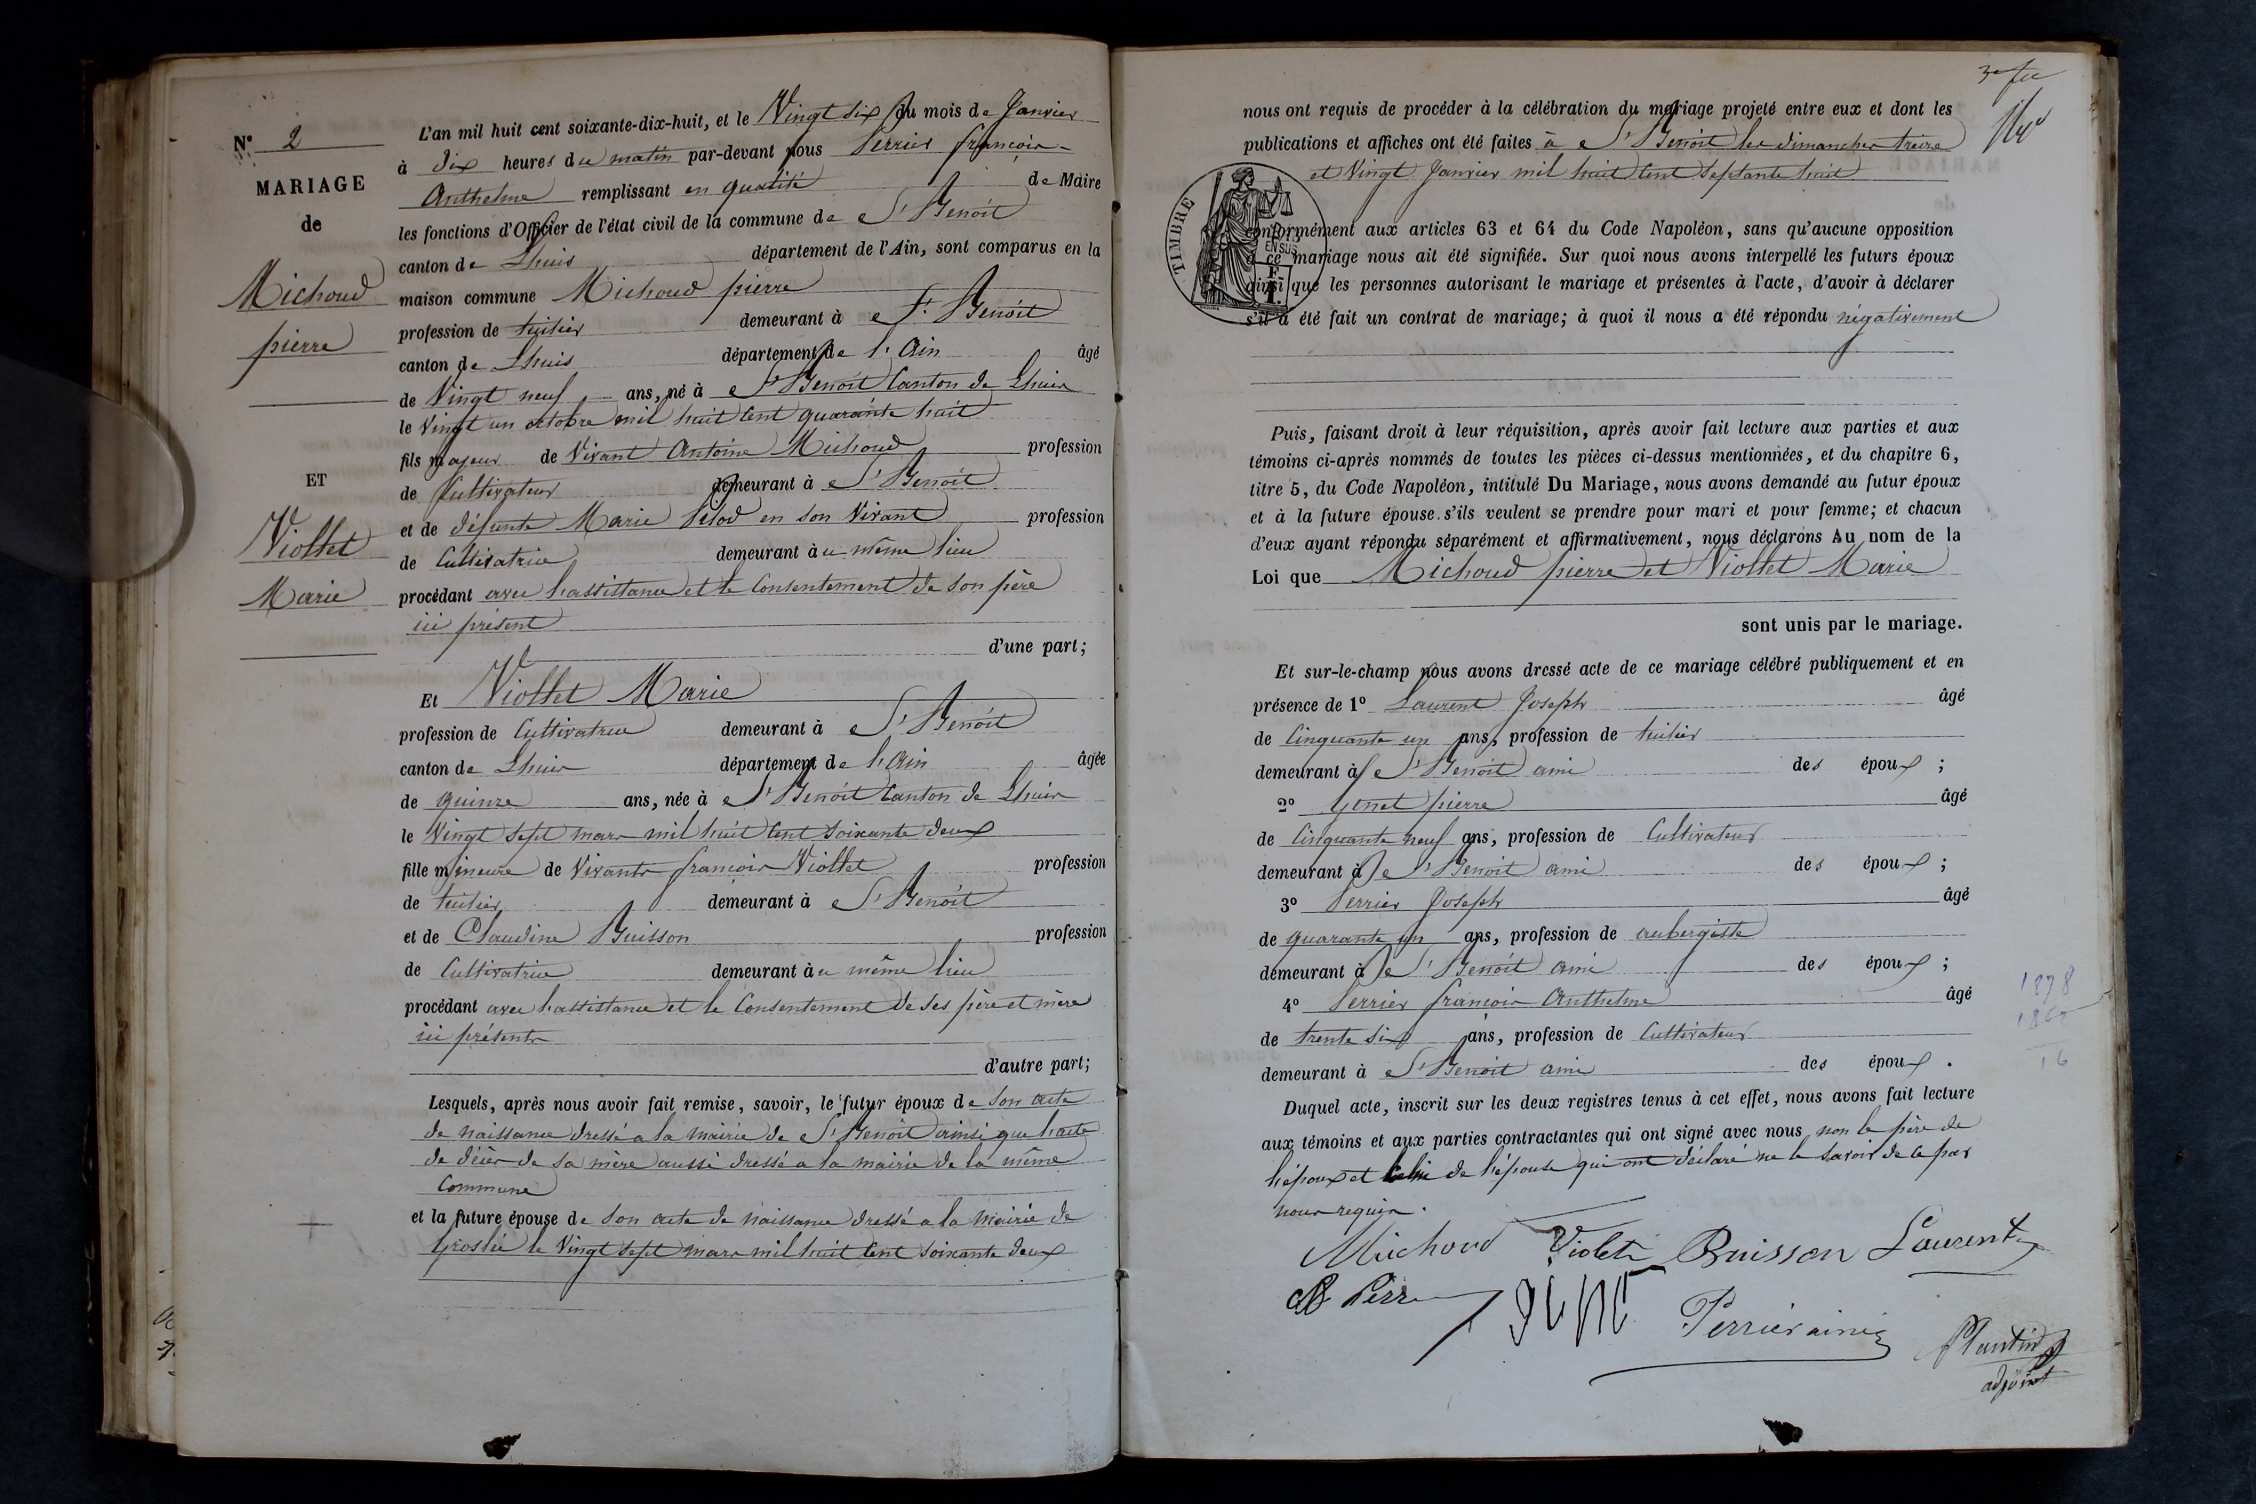 N° 2
MARIAGE
de
Michoud
pierre
ET
Viollet
Marie
L'an mil huit cent soixante-dix-huit, et le Vingt six du mois de Janvier
à dix heures du matin par-devant nous Perrier françois
Anthelme remplissant en qualité de Maire
les fonctions d'Officier de l'état civil de la commune de St Benoit
canton de Lhuis département de l'Ain, sont comparus en la
maison commune Michoud pierre
profession de tuilier demeurant à St Benoit
canton de Lhuis département de l'Ain âgé
de Vingt neuf ans, né à St Benoit Canton de Lhuis
le vingt un octobre mil huit cent quarante huit
fils majeur de Vivant Antoine Michoud profession
de Cultivateur demeurant à St Benoit
et de défunte Marie en son Vivant profession
de Cultivatrice demeurant au même lieu
procédant avec l'assistance et le Consentement de son père
ici présent
d'une part;
Et Viollet Marie
profession de Cultivatrice demeurant à St Benoit
canton de Lhuis département de l'Ain âgée
de quinze ans, née à St Benoit Canton de Lhuis
le Vingt sept mars mil huit cent soixante deux
fille mineure de Vivants françois Viollet profession
de tuilier demeurant à St Benoit
et de Claudine Buisson profession
de Cultivatrice demeurant au même lieu
procédant avec l'assistance et le Consentement de ses père et mère
ici présents
d'autre part;
Lesquels, après nous avoir fait remise, savoir, le futur époux de son acte
de naissance dressé a la mairie de St Benoit ainsi que l'acte
de décès de sa mère aussi dressé a la mairie de la même
Commune
et la future épouse de son acte de naissance dressé a la mairie de
Groslée le Vingt sept mars mil huit cent soixante deux
nous ont requis de procéder à la célébration du mariage projeté entre eux et dont les
publications et affiches ont été faites à St Benoit les dimanches treize
et Vingt Janvier mil huit cent septante huit
TIMBRE
conformément aux articles 63 et 64 du Code Napoléon, sans qu'aucune opposition
à ce mariage nous ait été signifiée. Sur quoi nous avons interpellé les futurs époux
ainsi que les personnes autorisant le mariage et présentes à l'acte, d'avoir à déclarer
s'il a été fait un contrat de mariage; à quoi il nous a été répondu négativement
Puis, faisant droit à leur réquisition, après avoir fait lecture aux parties et aux
témoins ci-après nommés de toutes les pièces ci-dessus mentionnées, et du chapitre 6,
titre 5, du Code Napoléon, intitulé Du Mariage, nous avons demandé au futur époux
et à la future épouse s'ils veulent se prendre pour mari et pour femme; et chacun
d'eux ayant répondu séparément et affirmativement, nous déclarons Au nom de la
Loi que Michoud pierre et Viollet Marie
sont unis par le mariage.
Et sur-le-champ nous avons dressé acte de ce mariage célébré publiquement et en
présence de 1° Laurent Joseph âgé
de Cinquante un ans, profession de tuilier
demeurant à St Benoit ami des époux ;
2° Genet pierre âgé
de Cinquante neuf ans, profession de Cultivateur
demeurant à St Benoit ami des époux ;
3° Perrier Joseph âgé
de quarante un ans, profession de aubergiste
demeurant à St Benoit ami des époux ;
4° Perrier françois Anthelme âgé
de trente six ans, profession de Cultivateur
demeurant à St Benoit ami des époux .
1878
16
Duquel acte, inscrit sur les deux registres tenus à cet effet, nous avons fait lecture
aux témoins et aux parties contractantes qui ont signé avec nous non le père de
l'époux et Celui de l'épouse qui ont déclaré ne le savoir de ce par
nous requis.
Michoud Violet Buisson Laurent
Perrier ainé
Plantin
adjoint